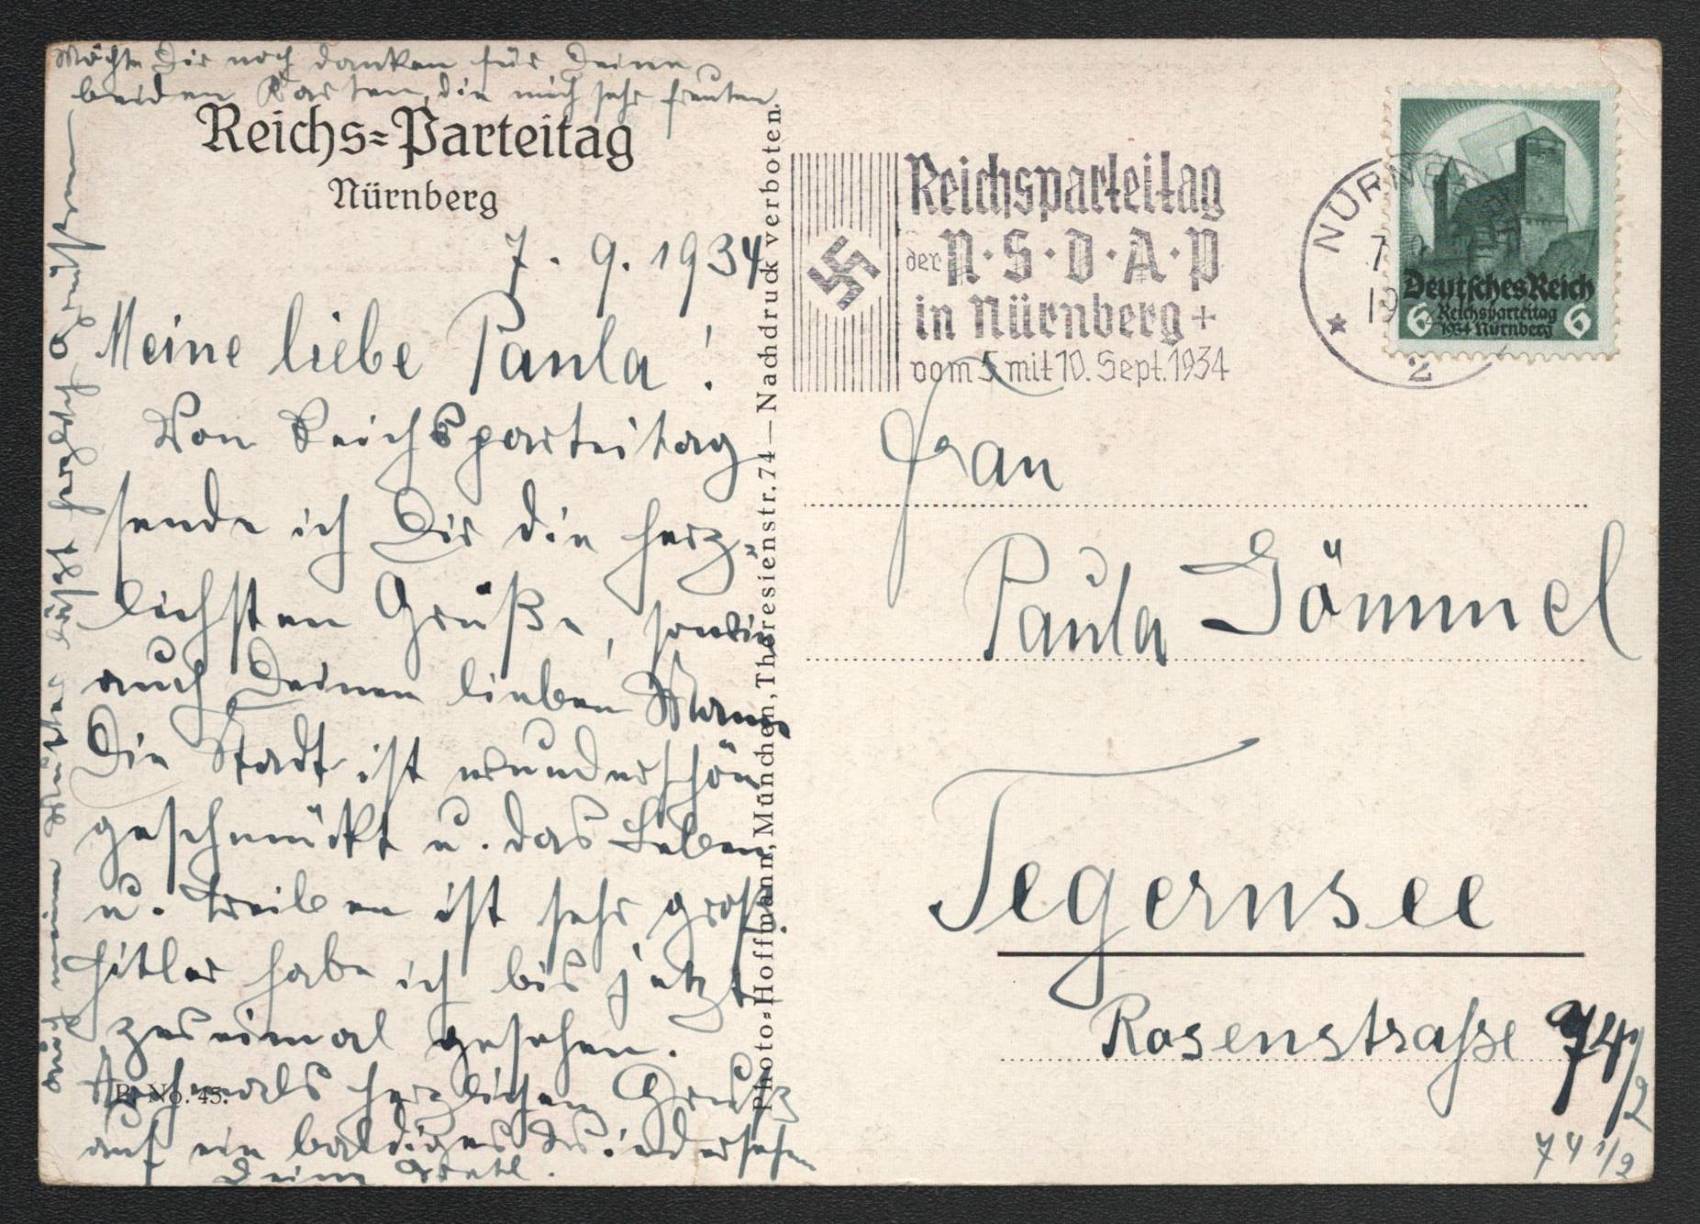 Möchte Dir noch danken für Deine
beiden Karten, die mich sehr freuten.
Reichs=Parteitag
Nürnberg
7. 9. 1934
Meine liebe Paula!
Von Reichsparteitag
sende ich Dir die herz-
lichsten Grüße, sowie
auch Deinen lieben Mann.
Die Stadt ist wunderschön
geschmückt u. das Leben
u. Treiben ist sehr groß.
Hitler habe ich bis jetzt
zweimal gesehen.
Nochmals herzlichen Gruß
auf ein baldiges Wiedersehen
Deine Gretl.
B. No. 45.
Auch meine Mutter läßt herzlich grüßen
Photo=Hoffmann, München, Theresienstr. 74 — Nachdruck verboten.
Reichsparteitag
der N·S·D·A·P
in Nürnberg +
vom 5. mit 10. Sept. 1934
NÜRNBERG
7.
19
2
Deutsches Reich
6 Reichsparteitag 6
1934 Nürnberg
Frau
Paula Gömmel
Tegernsee
Rosenstrasse 74/2
74 1/2